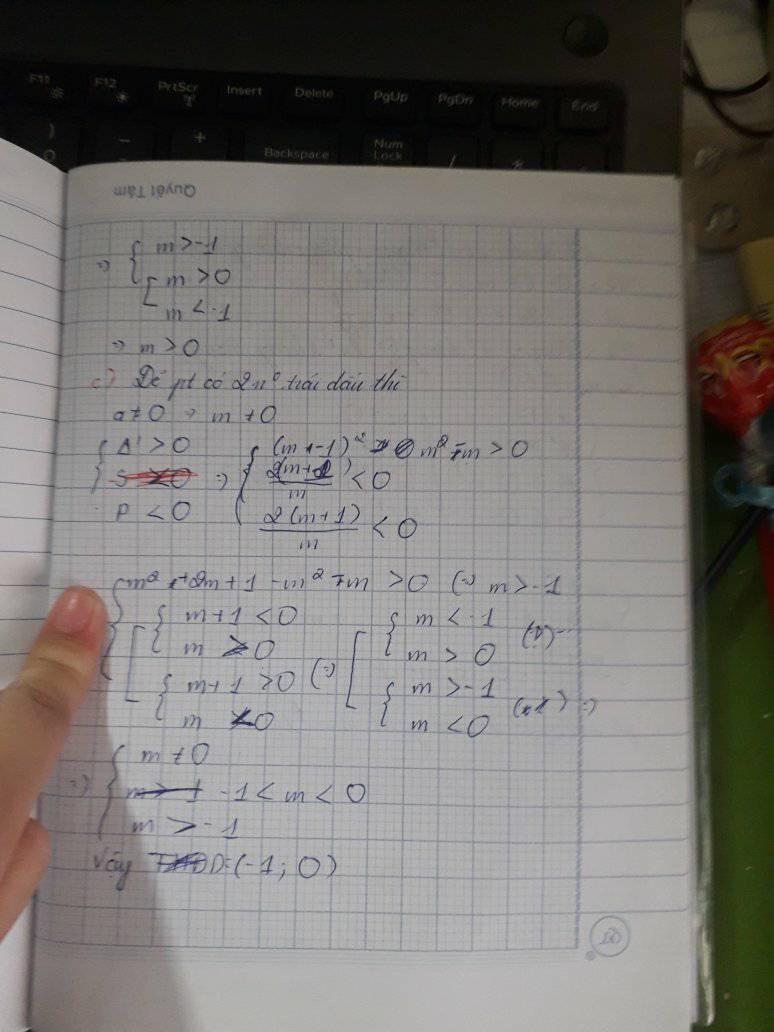 F11 F12 PrtScr Insert Delete PgUp PgDn Home End
Backspace Num Lock / *
Quyết Tâm
⇔ { m > -1
[ m > 0
m < -1
⇒ m > 0
c) Để pt có 2 n⁰ trái dấu thì
a ≠ 0 ⇒ m ≠ 0
{ Δ' > 0
P < 0
⇒ { (m+1)² - m² - m > 0
2(m+1)/m < 0
2(m+1)/m < 0
{ m² + 2m + 1 - m² - m > 0 ⇔ m > -1
[ { m + 1 < 0
m > 0
{ m + 1 > 0
m < 0
⇔ [ { m < -1
m > 0 (*)
{ m > -1
m < 0 (**) ⇒
⇒ { m ≠ 0
-1 < m < 0
m > -1
Vậy D = (-1; 0)